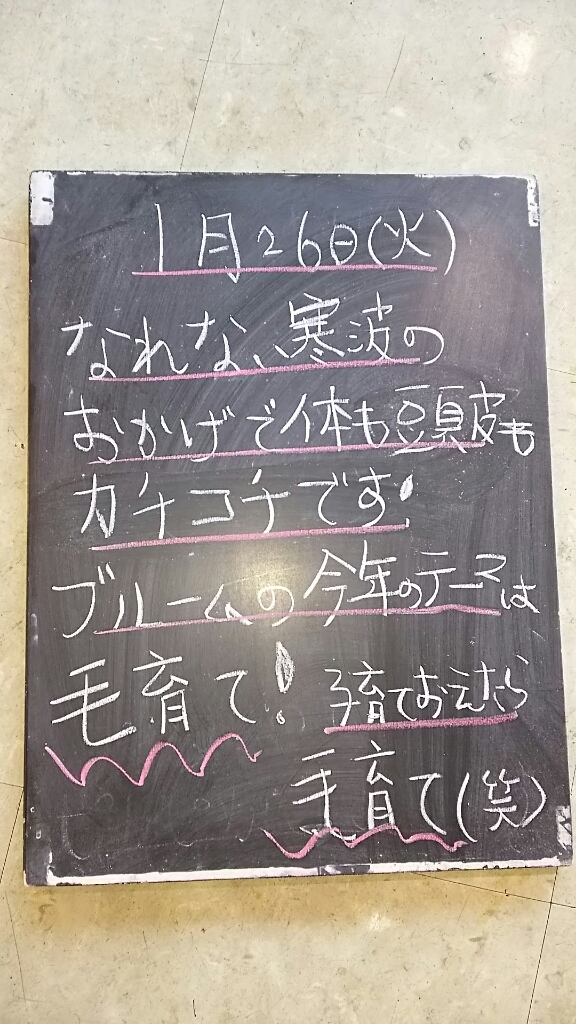 1月26日(火)
なれない寒波の
おかげで体も頭皮も
カチコチです!
ブルームの今年のテーマは
毛育て! 子育ておえたら
毛育て(笑)